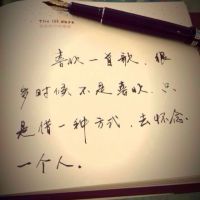 喜欢一首歌,很
多时候不是喜欢,只
是借一种方式,去怀念
一个人。